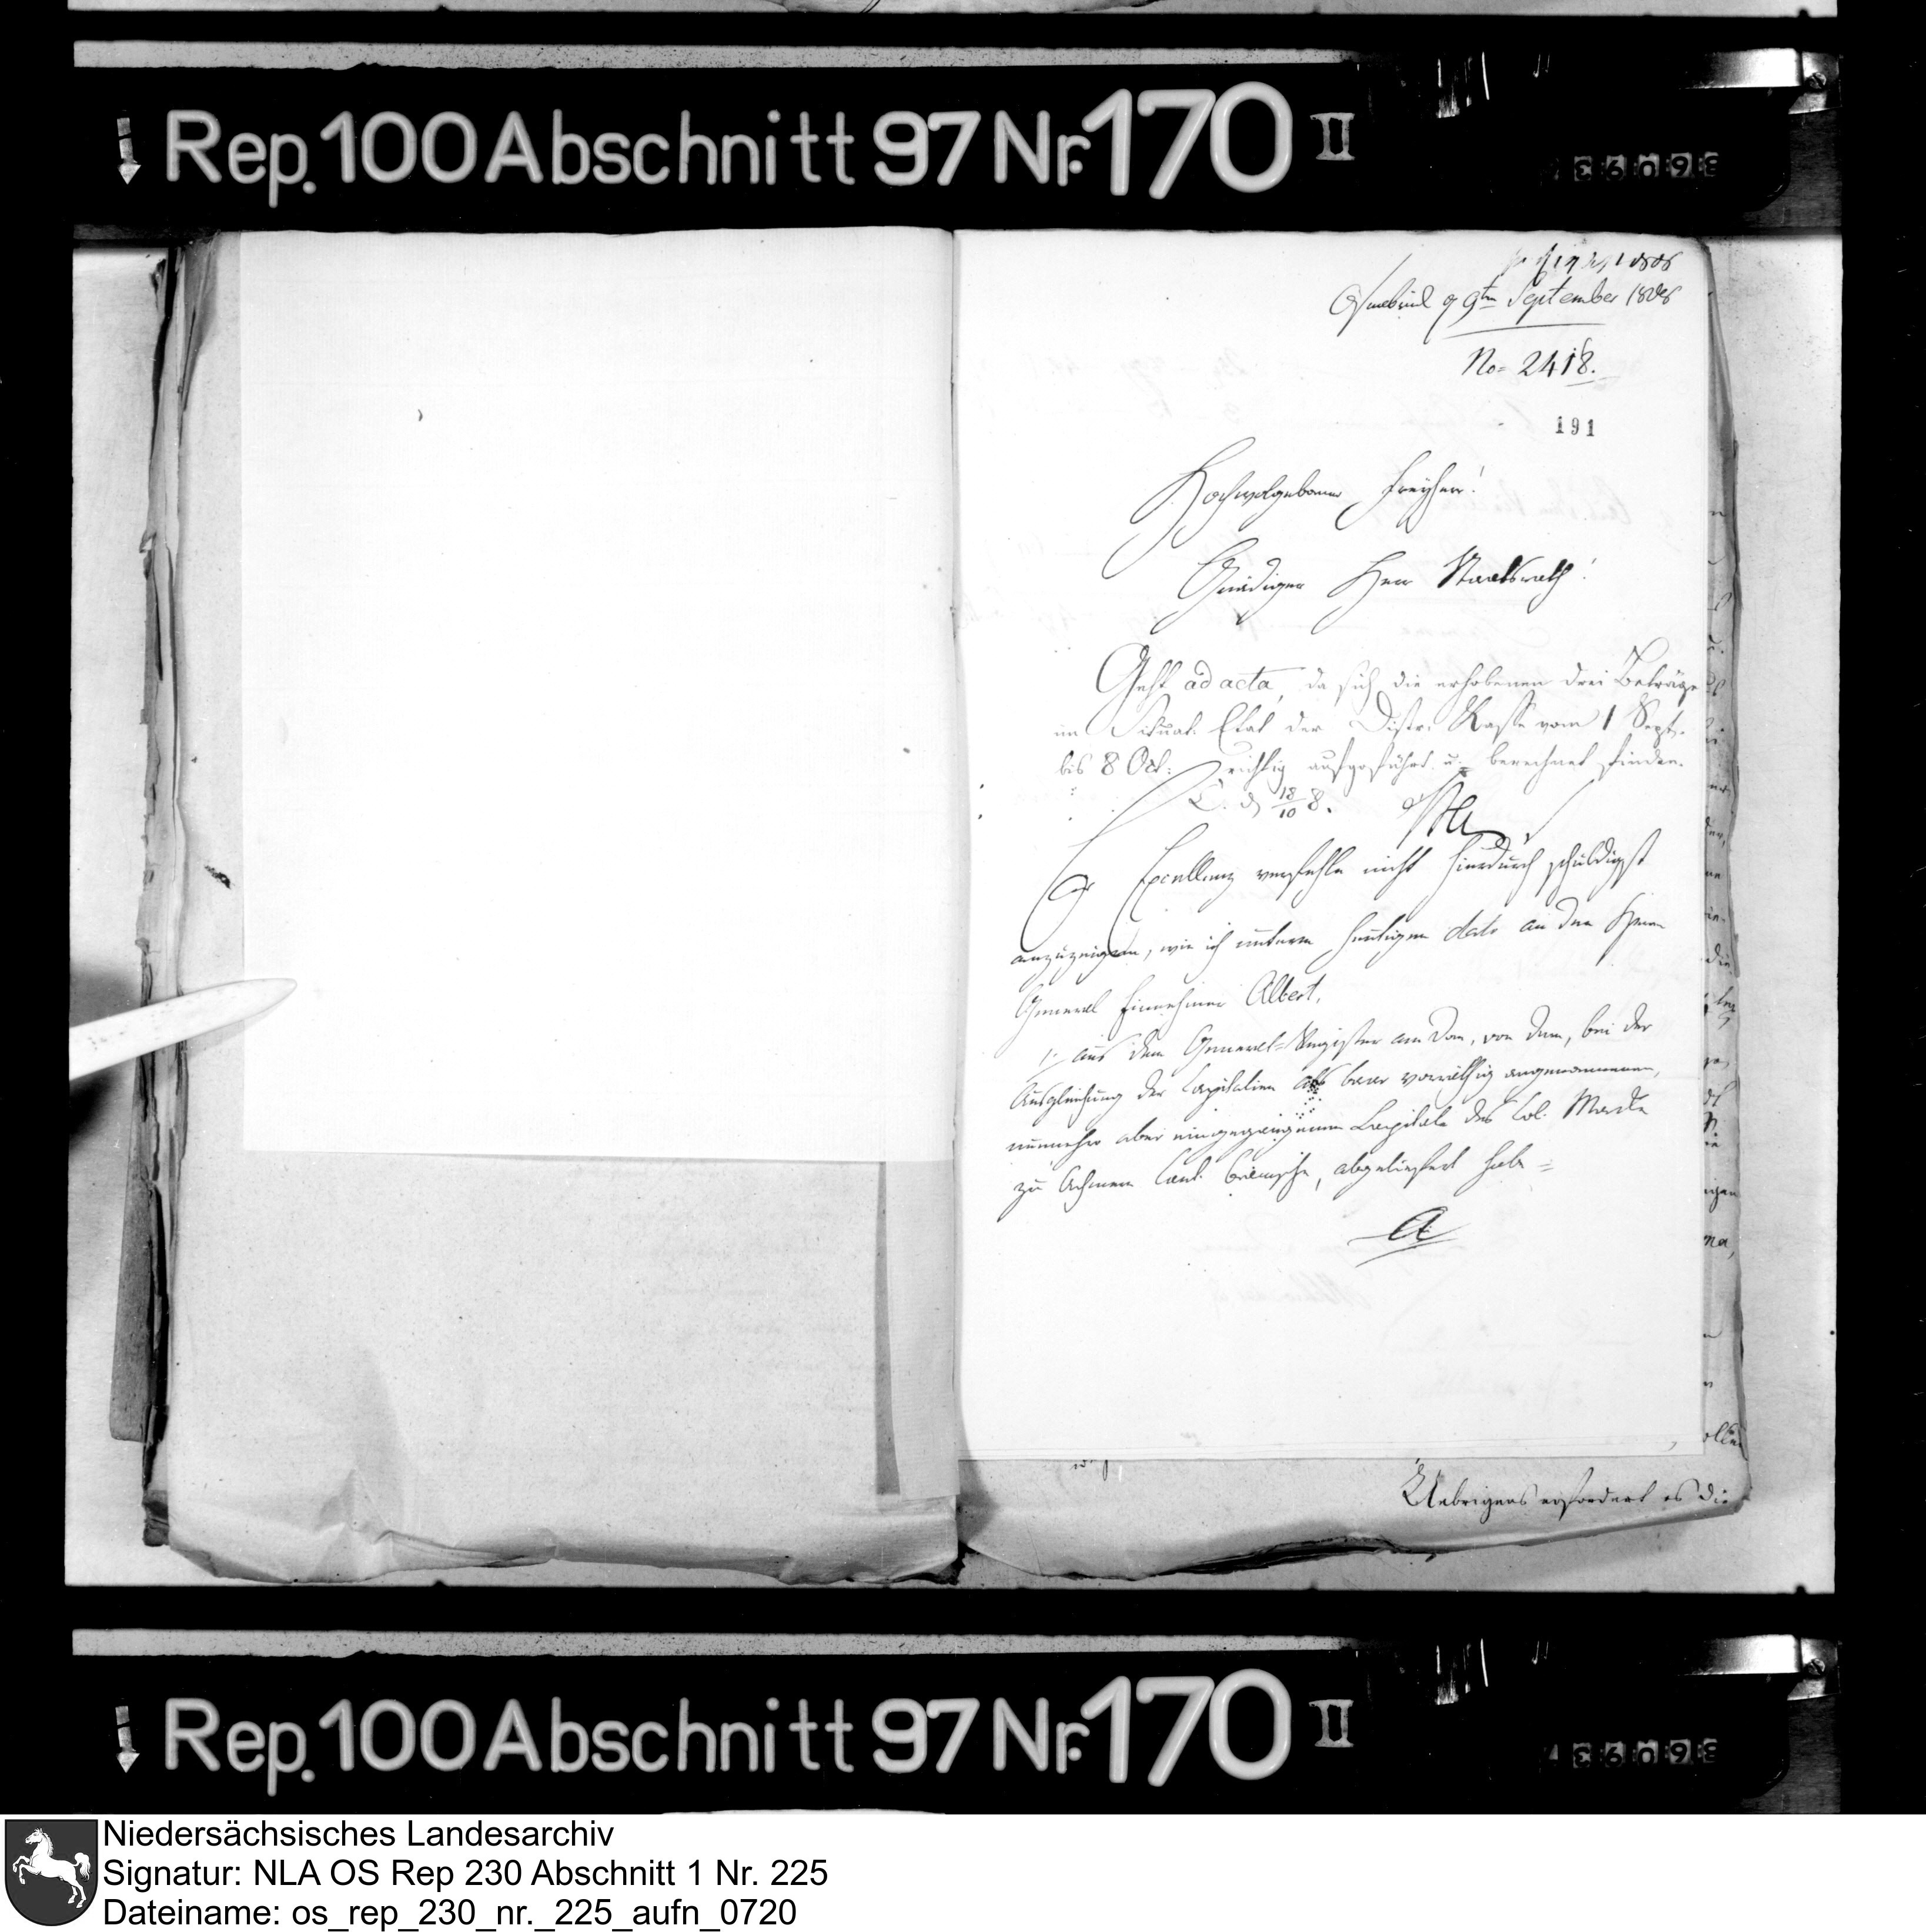 Rep. 100 Abschnitt 97 Nr. 170 II
Osnabrück d 9ten September 1808
No= 2418.
191
Hochwohlgeborner Freyherr!
Gnädiger Herr Staatsrath!
Geht ad acta, da sich die erhobenen drei Beträge
im Situat. Etat der Distr. Kasse vom 1 Sept.
bis 8 Oct: richtig aufgeführt u. berechnet finden.
O. d 18/10 8.
Ew Excellenz verfehle nicht hierdurch schuldigst
anzuzeigen, wie ich unterm heutigen dato an den Herrn
General Einnehmer Albert,
1, aus dem General-Register am Dom, von dem, bei der
Ausgleichung der Capitalien als baar vorräthig angenommenen,
nunmehr aber eingegangenen Capitale des Col.
zu Achmer Cant. Bramsche, abgeliefert habe =
a
Uebrigens erfordert es die
Rep. 100 Abschnitt 97 Nr. 170 II
Niedersächsisches Landesarchiv
Signatur: NLA OS Rep 230 Abschnitt 1 Nr. 225
Dateiname: os_rep_230_nr._225_aufn_0720